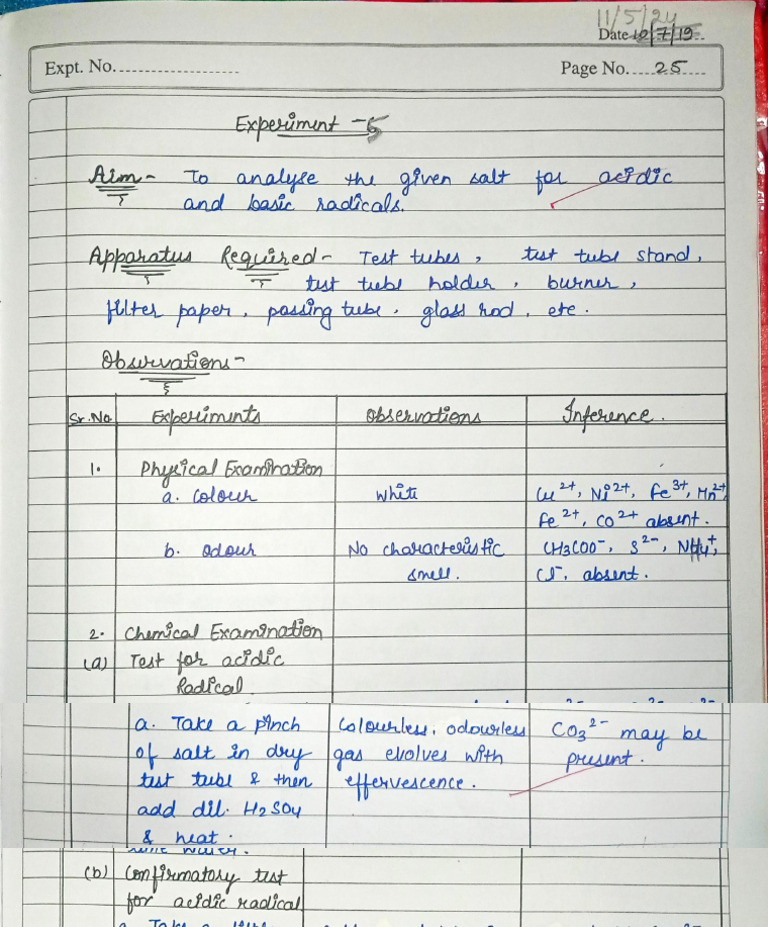 11/5/24
Date 10/7/19
Expt. No.
Page No. 25
Experiment - 5
Aim - To analyse the given salt for acidic
and basic radicals.
Apparatus Required - Test tubes, test tube stand,
test tube holder, burner,
filter paper, passing tube, glass rod, etc.
Observations -
Sr.No. Experiments Observations Inference.
1. Physical Examination
a. colour White Cu2+, Ni2+, Fe3+, Mn2+,
Fe2+, CO2+ absent.
b. odour No characteristic CH3COO-, S2-, NH4+,
smell. Cl-, absent.
2. Chemical Examination
(a) Test for acidic
Radical
a. Take a pinch Colourless, odourless CO3 2- may be
of salt in dry gas evolves with present.
test tube & then effervescence.
add dil. H2SO4
& heat.
(b) Confirmatory test
for acidic radical